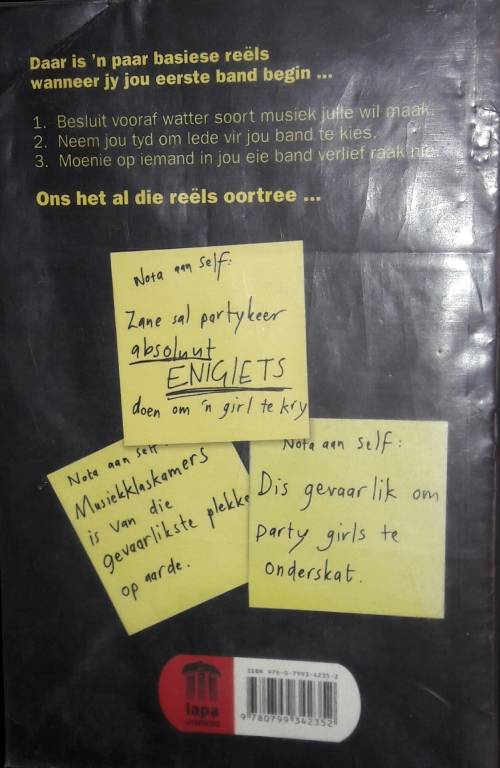 Daar is 'n paar basiese reëls
wanneer jy jou eerste band begin ...
1. Besluit vooraf watter soort musiek julle wil maak.
2. Neem jou tyd om lede vir jou band te kies.
3. Moenie op iemand in jou eie band verlief raak nie.
Ons het al die reëls oortree ...
Nota aan self:
Zane sal partykeer
absoluut
ENIGIETS
doen om 'n girl te kry
Nota aan self:
Musiekklaskamers
is van die
gevaarlikste plekke
op aarde.
Nota aan self:
Dis gevaarlik om
party girls te
onderskat.
lapa
ISBN 978-0-7993-4235-2
9 780799 342352